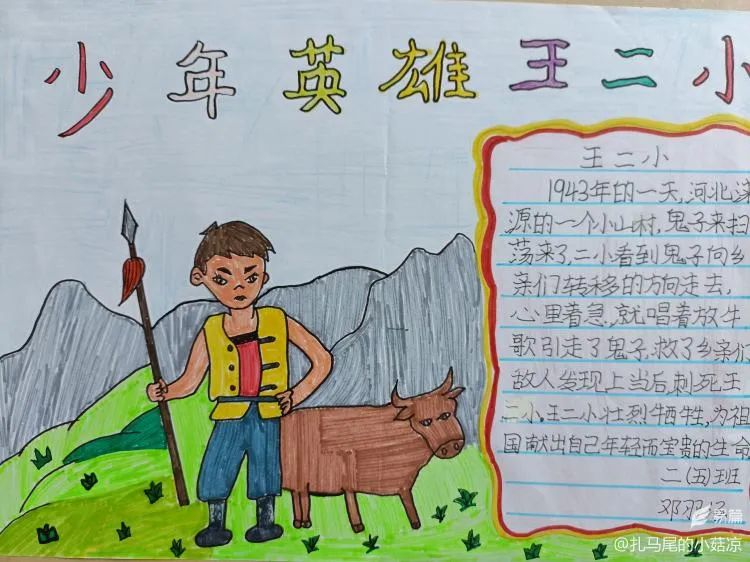 少年英雄王二小
王二小
1943年的一天,河北涞
源的一个小山村,鬼子来扫
荡来了,二小看到鬼子向乡
亲们转移的方向走去,
心里着急,就唱着放牛
歌引走了鬼子,救了乡亲们
敌人发现上当后,刺死王
二小。王二小壮烈牺牲,为祖
国献出自己年轻而宝贵的生命
二(五)班
邓
@扎马尾的小菇凉